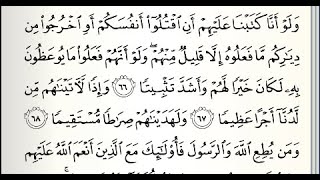 وَلَوْ أَنَّا كَتَبْنَا عَلَيْهِمْ أَنِ اقْتُلُوٓا۟ أَنفُسَكُمْ أَوِ اخْرُجُوا۟ مِن
دِيَـٰرِكُم مَّا فَعَلُوهُ إِلَّا قَلِيلٌ مِّنْهُمْ ۖ وَلَوْ أَنَّهُمْ فَعَلُوا۟ مَا يُوعَظُونَ
بِهِۦ لَكَانَ خَيْرًا لَّهُمْ وَأَشَدَّ تَثْبِيتًا ٦٦ وَإِذًا لَّـَٔاتَيْنَـٰهُم مِّن
لَّدُنَّآ أَجْرًا عَظِيمًا ٦٧ وَلَهَدَيْنَـٰهُمْ صِرَٰطًا مُّسْتَقِيمًا ٦٨
وَمَن يُطِعِ اللَّهَ وَالرَّسُولَ فَأُو۟لَـٰٓئِكَ مَعَ الَّذِينَ أَنْعَمَ اللَّهُ عَلَيْهِم